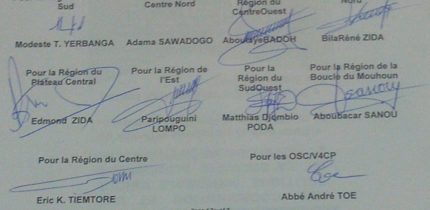 Sud
Centre Nord
Région du
CentreOuest
Nord
Modeste T. YERBANGA
Adama SAWADOGO
AboulayeBADOH
BilaRéné ZIDA
Pour la Région du
Plateau Central
Pour la Région de
l'Est
Pour la
Région du
SudOuest
Pour la Région de la
Boucle du Mouhoun
Edmond ZIDA
Paripouguini
LOMPO
Matthias Djombio
PODA
Aboubacar SANOU
Pour la Région du Centre
Pour les OSC/V4CP
Eric K. TIEMTORE
Abbé André TOE